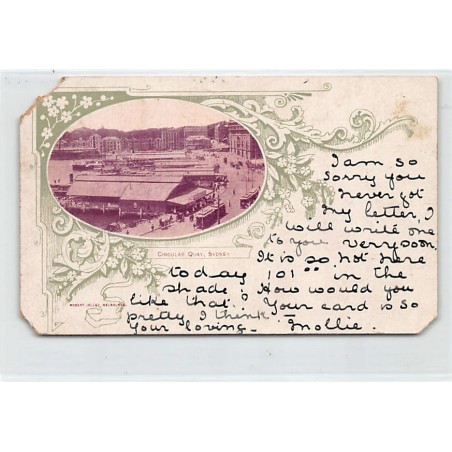 I am so
sorry you
never got
my letter, I
will write one
to you very soon.
It is so hot here
today 101°° in the
shade; How would you
like that? Your card is so
pretty I think
Your loving - Mollie.
CIRCULAR QUAY, SYDNEY
MELBOURNE